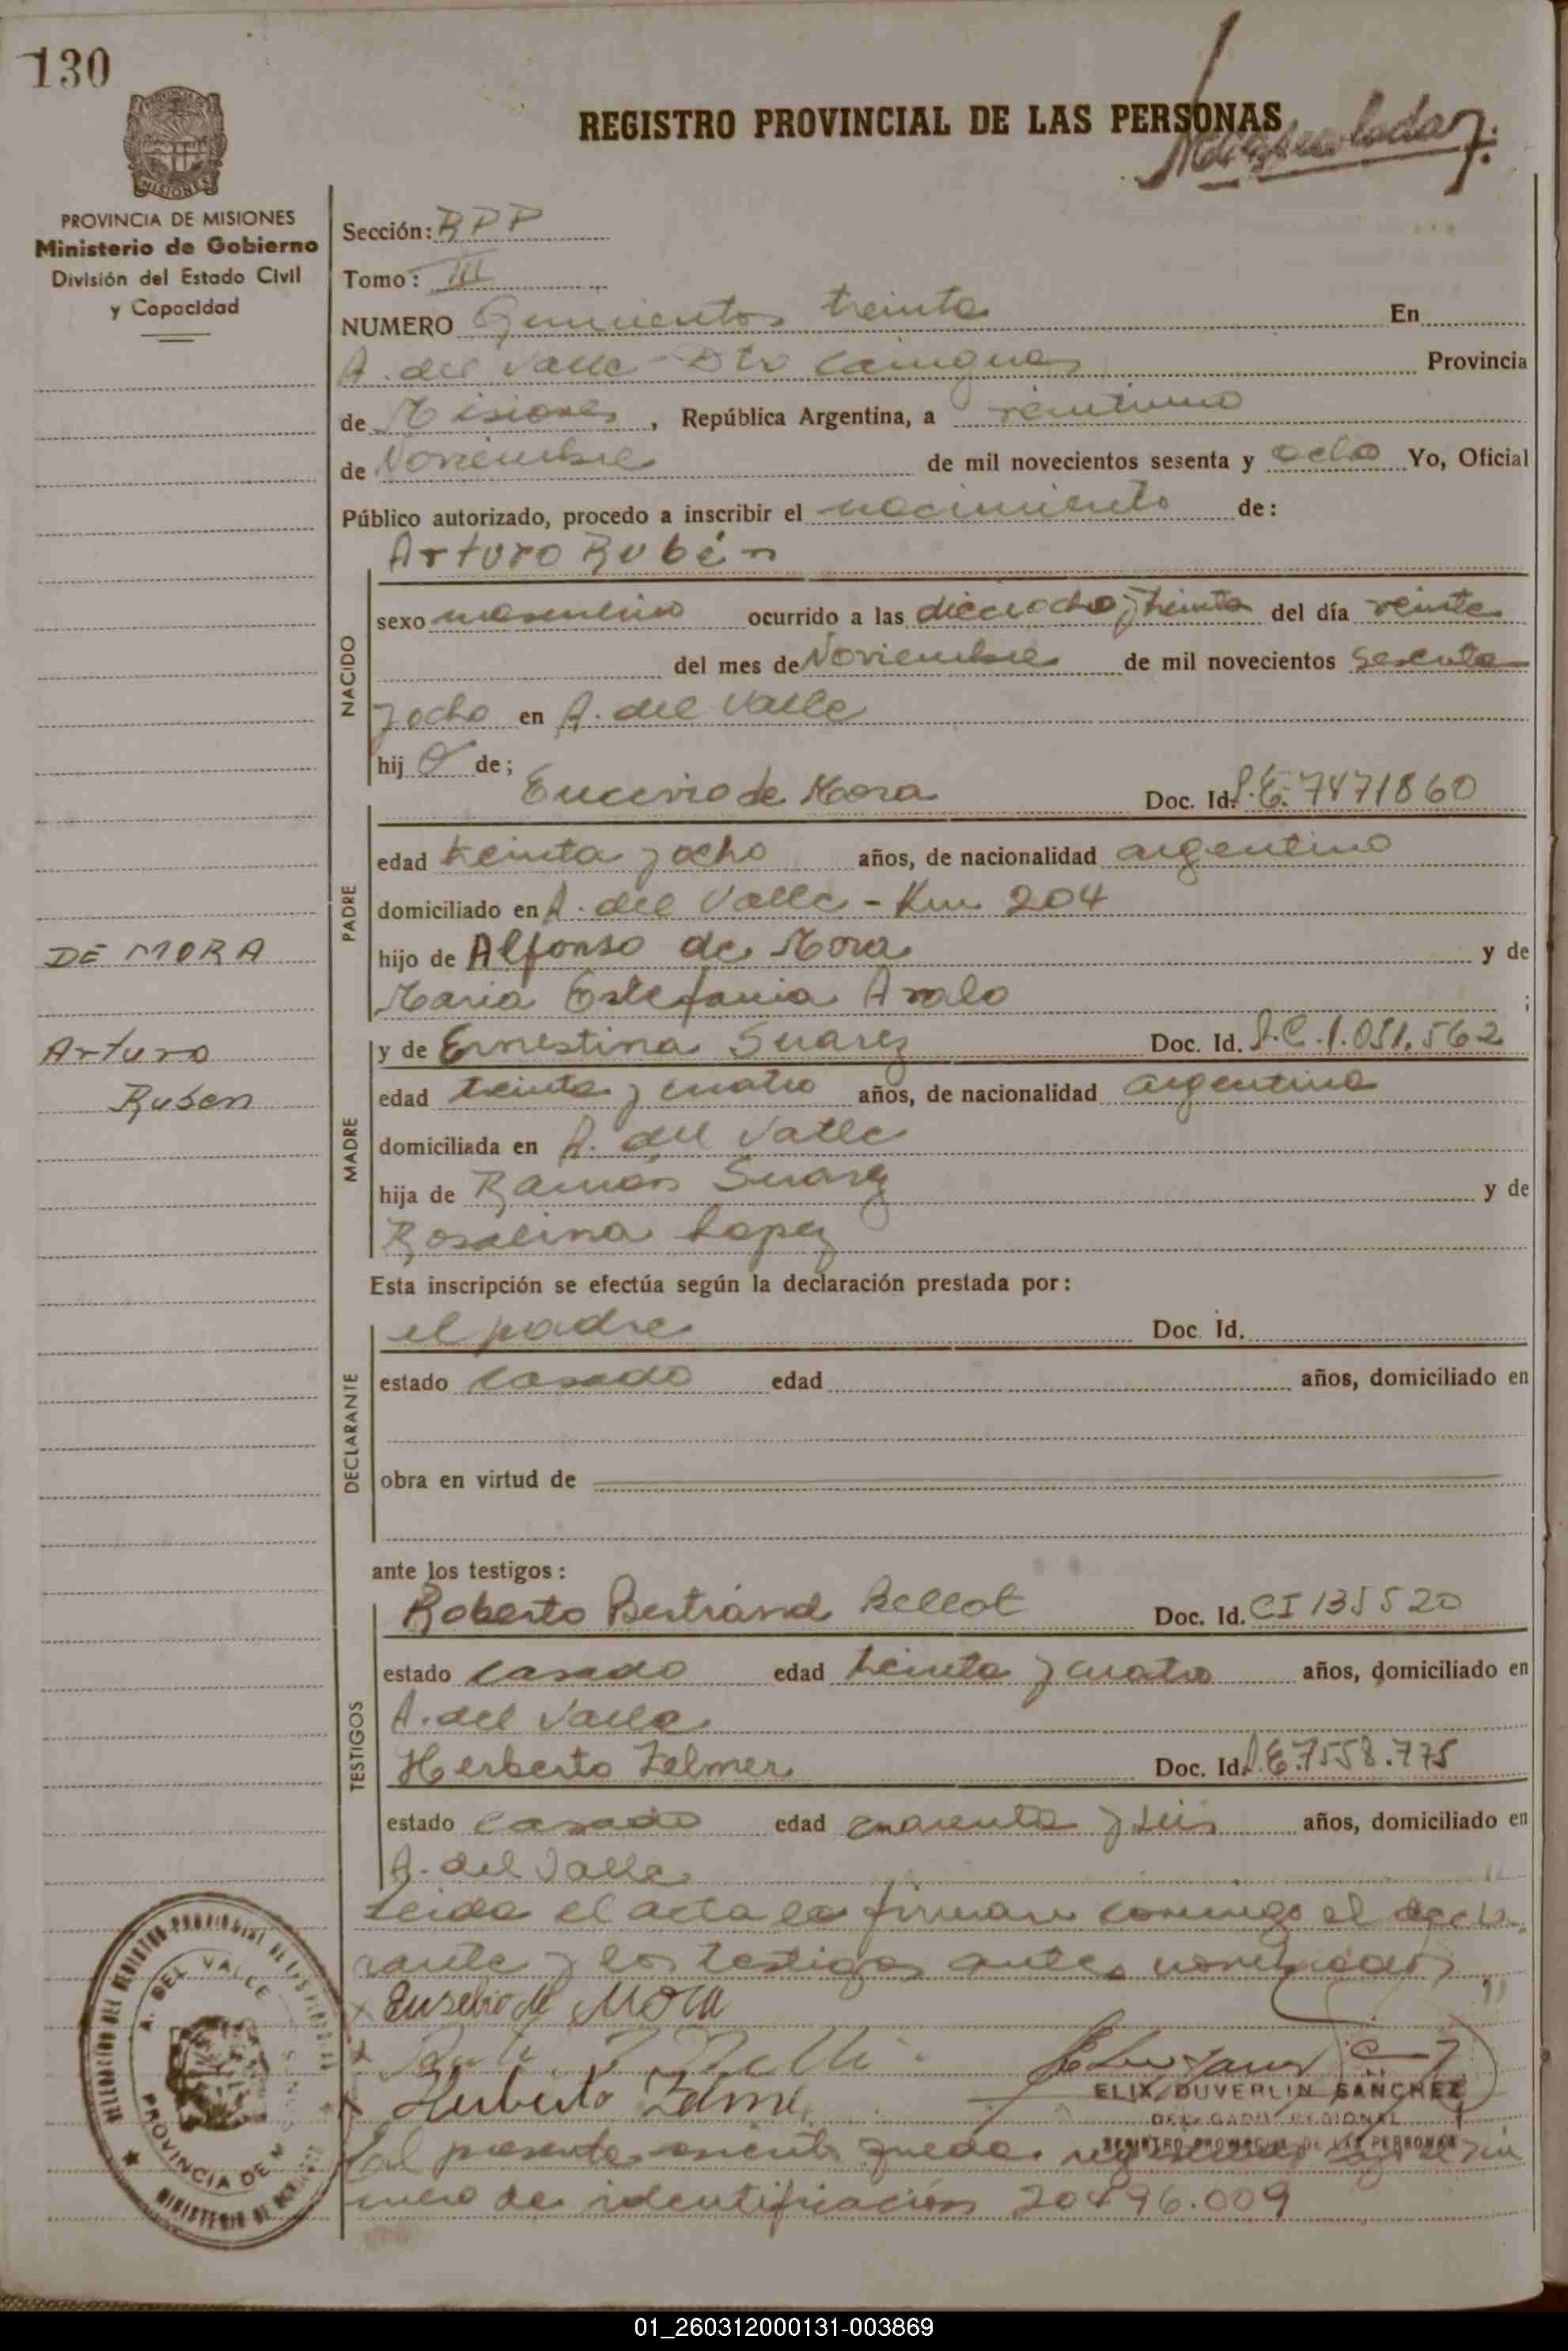 130
REGISTRO PROVINCIAL DE LAS PERSONAS
PROVINCIA DE MISIONES
Ministerio de Gobierno
División del Estado Civil
y Capacidad
Sección: RPP
Tomo: III
NUMERO Quinientos treinta En
A. del Valle - Dto Cainguas Provincia
de Misiones, República Argentina, a veintiuno
de Noviembre de mil novecientos sesenta y ocho Yo, Oficial
Público autorizado, procedo a inscribir el nacimiento de:
Arturo Rubén
NACIDO
sexo masculino ocurrido a las dieciocho y treinta del día veinte
del mes de Noviembre de mil novecientos sesenta
y ocho en A. del Valle
hij o de;
PADRE
de Mora Doc. Id. L.E. 7471860
edad treinta y ocho años, de nacionalidad argentino
domiciliado en A. del Valle - Km 204
hijo de Alfonso de Mora y de
Maria Estefania Avalo ;
DE MORA
Arturo
Ruben
MADRE
y de Ernestina Suarez Doc. Id. L.C. 1.051.562
edad treinta y cuatro años, de nacionalidad argentina
domiciliada en A. del Valle
hija de Ramón Suarez y de
Rosalina Lopez
Esta inscripción se efectúa según la declaración prestada por:
DECLARANTE
el padre Doc. Id.
estado casado edad años, domiciliado en
obra en virtud de
ante los testigos:
TESTIGOS
Roberto Bertrand Rellot Doc. Id. CI 135520
estado casado edad treinta y cuatro años, domiciliado en
A. del Valle
Herberto Zelmer Doc. Id. L.E. 7558.775
estado casado edad cuarenta y seis años, domiciliado en
A. del Valle
Leida el acta la firman conmigo el decla
rante y los testigos antes nombrados
x Eusebio de Mora
Herberto Zelmer
ELIX DUVERLIN SANCHEZ
DELEGADO REGIONAL
REGISTRO PROVINCIAL DE LAS PERSONAS
A. DEL VALLE
PROVINCIA DE
MINISTERIO DE
al presente asiento queda
mero de identificación 20.496.009
01_260312000131-003869